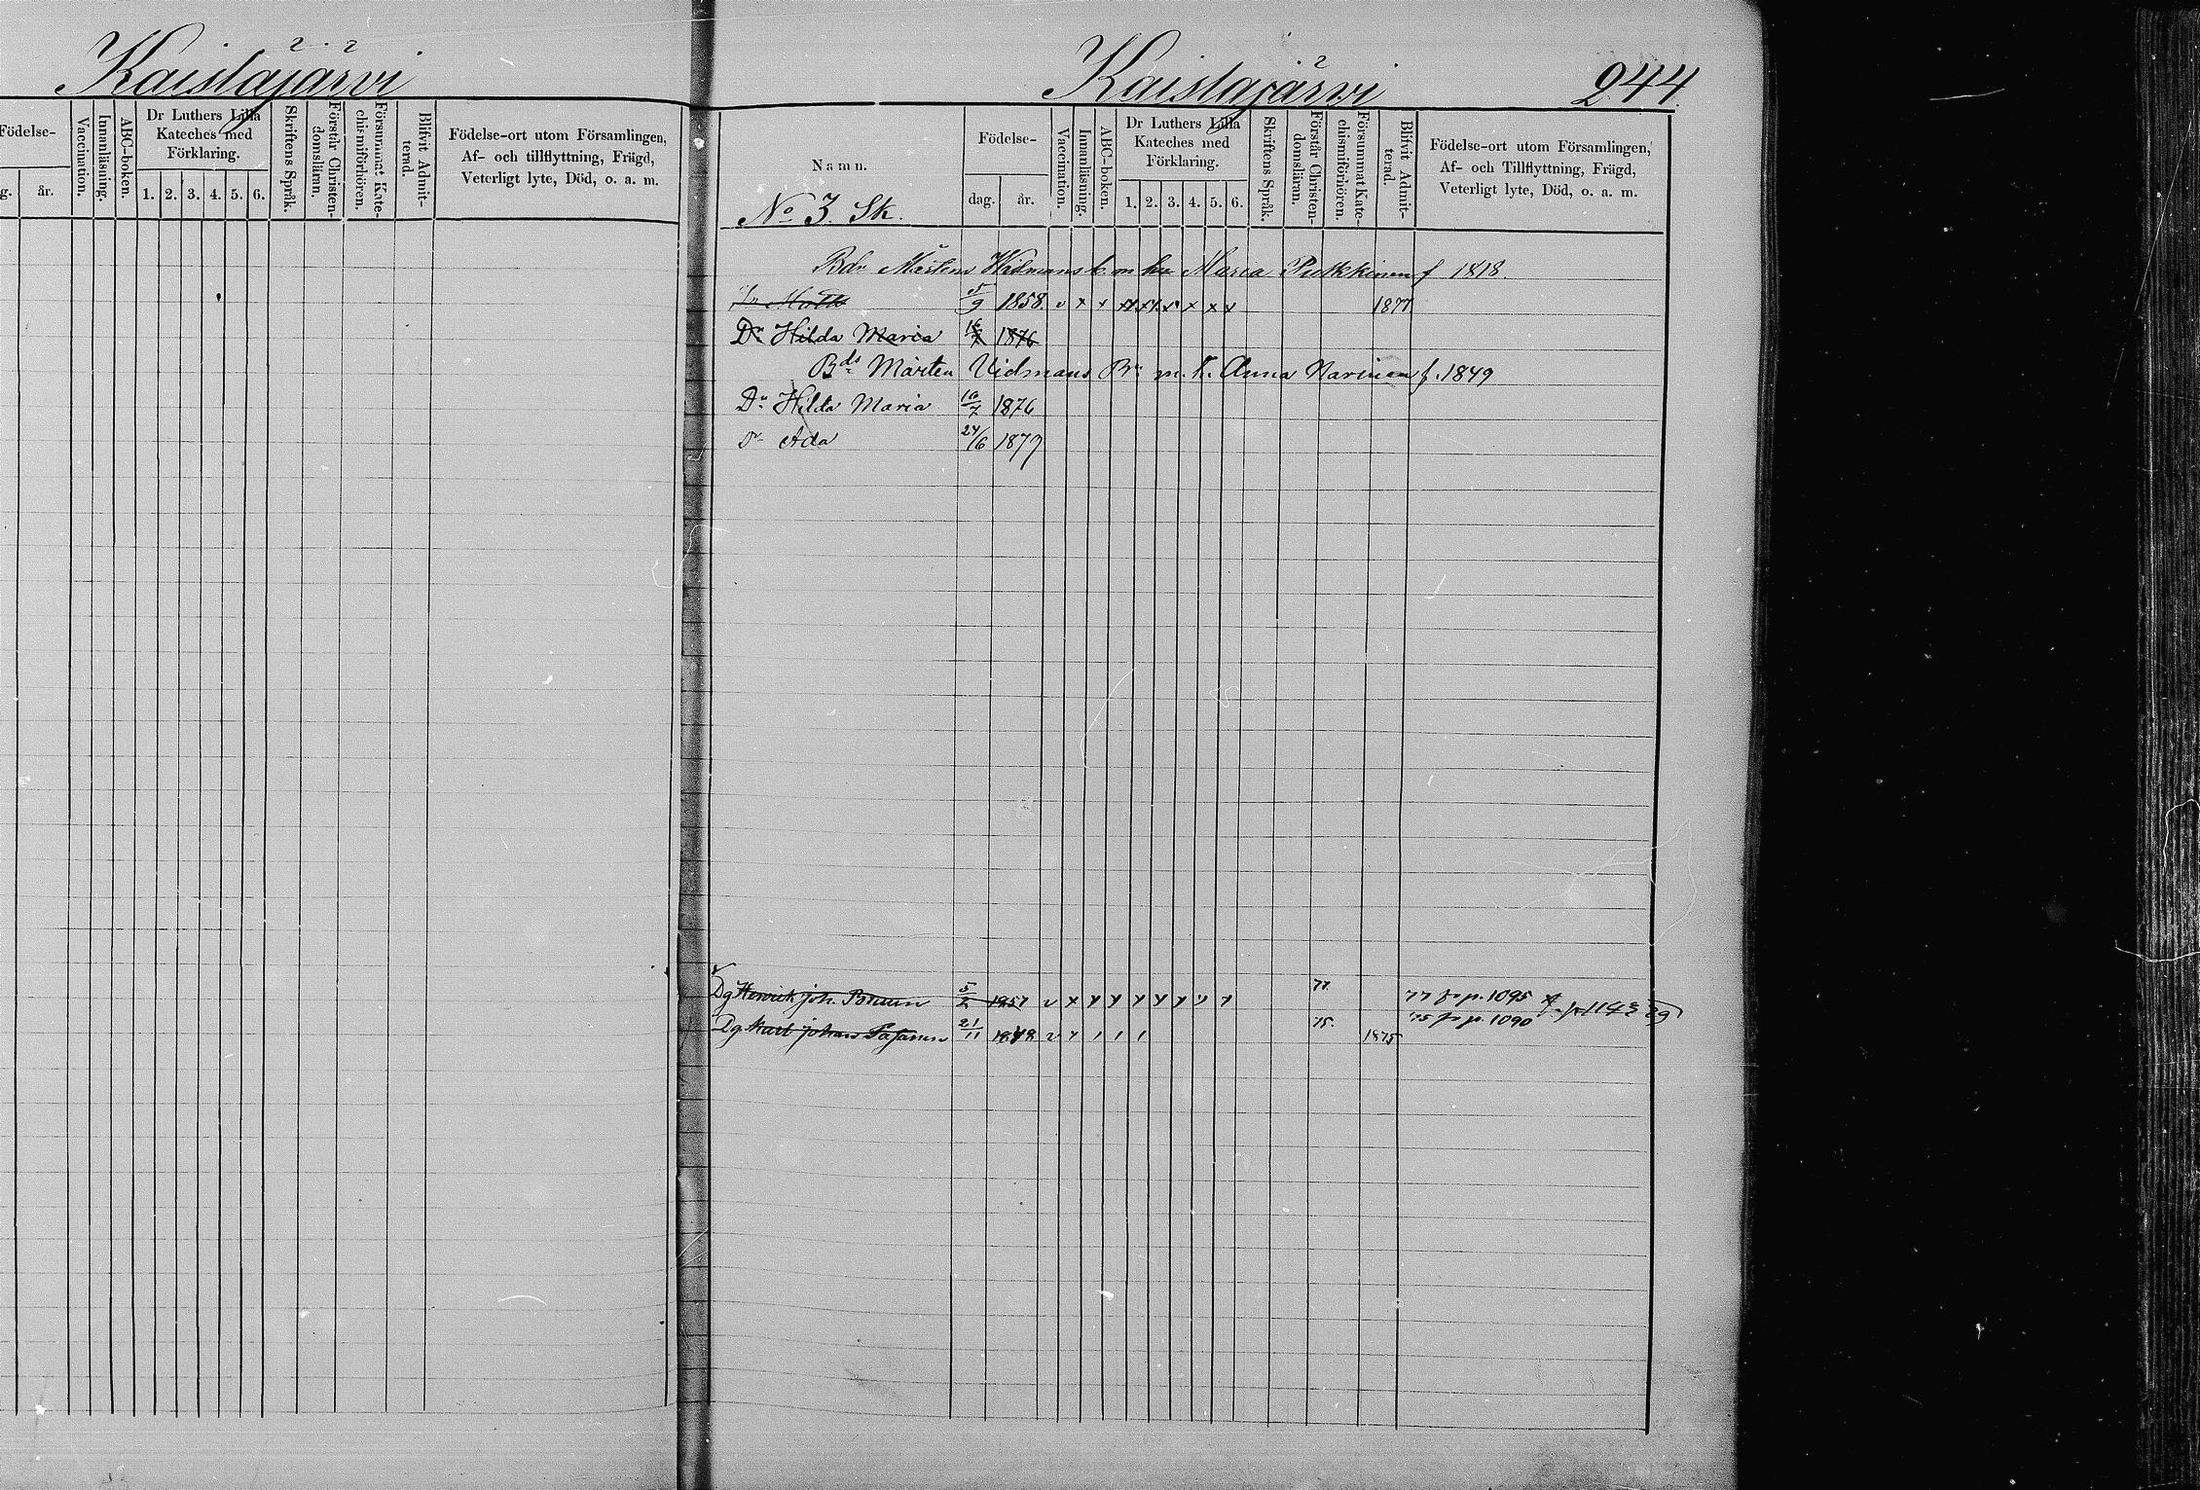 Kaistajärvi
Födelse-
g.
år.
Vaccination.
Innanläsning.
ABC-boken.
Dr Luthers Lilla
Kateches med
Förklaring.
1. 2. 3. 4. 5. 6.
Skriftens Språk.
Förstår Christen-
domsläran.
Försummat Kate-
chismiförhören.
Blifvit Admit-
terad.
Födelse-ort utom Församlingen,
Af- och tillflyttning, Frägd,
Veterligt lyte, Död, o. a. m.
Kaistajärvi 244
Namn.
No 3. Sk.
Födelse-
dag. år.
Vaccination.
Innanläsning.
ABC-boken.
Dr Luthers Lilla
Kateches med
Förklaring.
1. 2. 3. 4. 5. 6.
Skriftens Språk.
Förstår Christen-
domsläran.
Försummat Kate-
chismiförhören.
Blifvit Admit-
terad.
Födelse-ort utom Församlingen,
Af- och Tillflyttning, Frägd,
Veterligt lyte, Död, o. a. m.
Mårten Widmans Maria Pulkkinen f 1818
5/9 1858. v x x x x x x 1877
Dr Hilda Maria 16/7 1876
Bds Mårten Vidmans Br m. h. Anna Narinen f. 1849
Dr Hilda Maria 16/7 1876
Dr Ada 24/6 1877
Dg Henrick Joh. 5/2 1857 v x 77 77 fr p. 1095 1143
Dg Karl Johan 21/11 v x 75. 1875 75 fr p. 1090